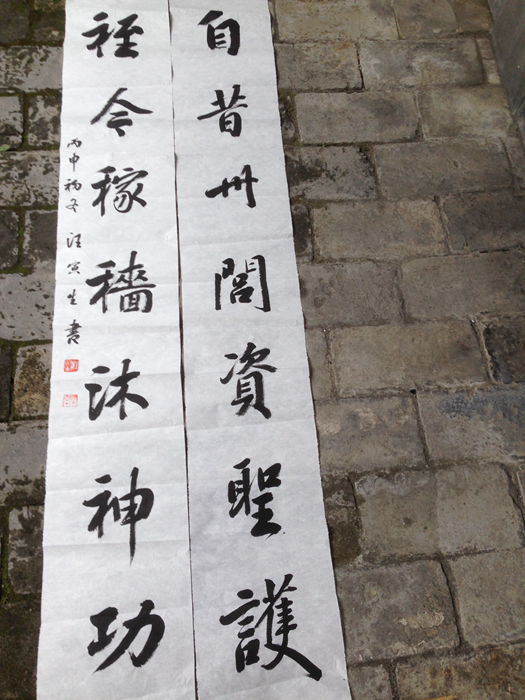 自昔州閭資聖護
今稼穡沐神功
丙申初冬 汪寅生書